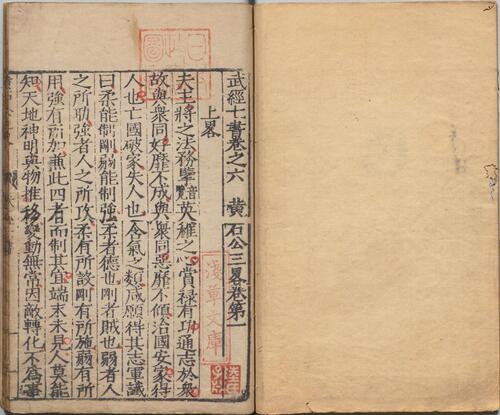 武經七書卷之六 黄石公三畧卷第一
上畧
夫主將之法務擥音覽英雄之心賞禄有功通志於衆
故與衆同好靡不成與衆同惡靡不傾治國安家得
人也亡國破家失人也含氣之類咸願得其志軍讖
曰柔能制剛弱能制強柔者德也剛者賊也弱者人
之所助強者人之所攻柔有所設剛有所施弱有所
用強有所加兼此四者而制其宜端末未見人莫能
知天地神明與物推移變動無常因敵轉化不爲事
淺草文庫